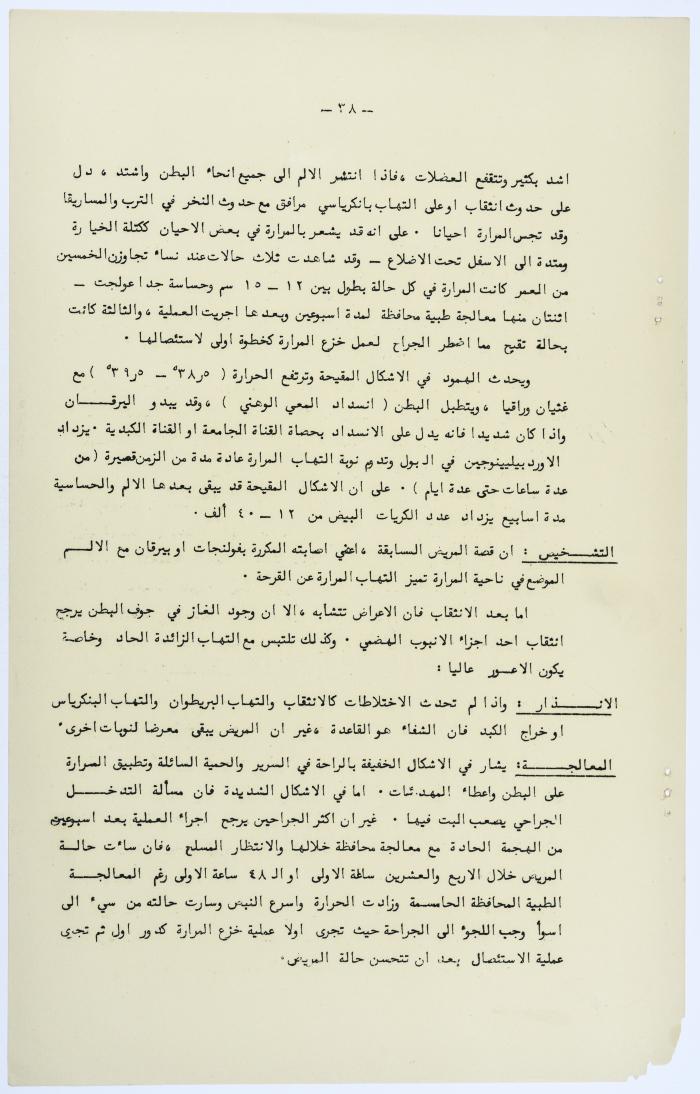 — ٣٨ —
اشد بكثير وتتقفع العضلات ، فاذا انتشر الالم الى جميع انحاء البطن واشتد ، دل
على حدوث انثقاب او على التهاب بانكرياسي مرافق مع حدوث النخر في الثرب والمساريقا
وقد تجس المرارة احيانا . على انه قد يشعر بالمرارة في بعض الاحيان ككتلة الخيارة
ومتدة الى الاسفل تحت الاضلاع — وقد شاهدت ثلاث حالات عند نساء تجاوزن الخمسين
من العمر كانت المرارة في كل حالة بطول بين ١٢ — ١٥ سم وحساسة جدا عولجت —
اثنتان منها معالجة طبية محافظة لمدة اسبوعين وبعدها اجريت العملية ، والثالثة كانت
بحالة تقيح مما اضطر الجراح لعمل خزع المرارة كخطوة اولى لاستئصالها .
ويحدث الهمود في الاشكال المقيحة وترتفع الحرارة ( ٣٨ر٥° — ٣٩ر٥° ) مع
غثيان وراقيا ، ويتطبل البطن ( انسداد المعي الوهني ) ، وقد يبدو اليرقـــان
واذا كان شديدا فانه يدل على الانسداد بحصاة القناة الجامعة او القناة الكبدية . يزداد
الاوردبيلينوجين في البول وتدوم نوبة التهاب المرارة عادة مدة من الزمن قصيرة ( من
عدة ساعات حتى عدة ايام ) . على ان الاشكال المقيحة قد يبقى بعدها الالم والحساسية
مدة اسابيع يزداد عدد الكريات البيض من ١٢ — ٤٠ ألف .
التشـــخيص : ان قصة المريض السابقة ، اعني اصابته المكررة بقولنجات او بيرقان مع الالـــم
الموضع في ناحية المرارة تميز التهاب المرارة عن القرحة .
اما بعد الانثقاب فان الاعراض تتشابه ، الا ان وجود الغاز في جوف البطن يرجح
انثقاب احد اجزاء الانبوب الهضمي . وكذلك تلتبس مع التهاب الزائدة الحاد وخاصة
يكون الاعـــور عاليا :
الانـــــذار : واذا لم تحدث الاختلاطات كالانثقاب والتهاب البريطوان والتهاب البنكرياس
او خراج الكبد فان الشفاء هو القاعدة ، غير ان المريض يبقى معرضا لنوبات اخرى ٠
المعالجـــــة: يشار في الاشكال الخفيفة بالراحة في السرير والحمية السائلة وتطبيق الحرارة
على البطن واعطاء المهدئات . اما في الاشكال الشديدة فان مسألة التدخـــــل
الجراحي يصعب البت فيها . غير ان اكثر الجراحين يرجح اجراء العملية بعد اسبوعين
من الهجمة الحادة مع معالجة محافظة خلالها والانتظار المسلح ، فان ساءت حالـــة
المريض خلال الاربع والعشرين ساعة الاولى او الـ ٤٨ ساعة الاولى رغم المعالجـــة
الطبية المحافظة الحاسمة وزادت الحرارة واسرع النبض وسارت حالته من سيء الى
اسوأ وجب اللجوء الى الجراحة حيث تجرى اولا عملية خزع المرارة كدور اول ثم تجرى
عملية الاستئصال بعد ان تتحسن حالة المريض.